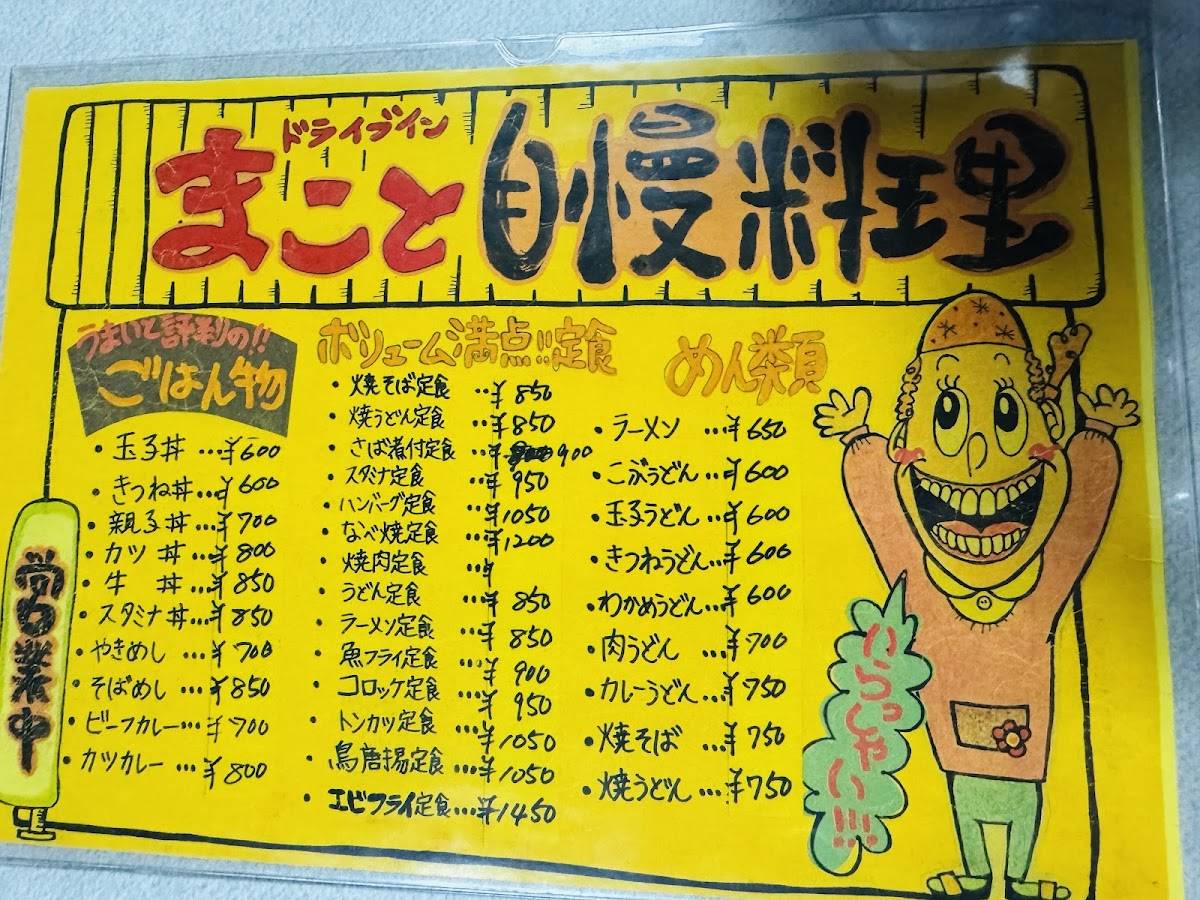 ドライブイン
まこと 自慢料理
うまいと評判の!!
ごはん物
・玉子丼 …¥600
・きつね丼…¥600
・親子丼…¥700
・カツ丼…¥800
・牛 丼…¥850
・スタミナ丼…¥850
・やきめし …¥700
・そばめし …¥850
・ビーフカレー…¥700
・カツカレー …¥800
ボリューム満点!!定食
・焼そば定食 …¥850
・焼うどん定食 …¥850
・さば煮付定食 …¥900
・スタミナ定食 …¥950
・ハンバーグ定食 …¥1050
・なべ焼定食 …¥1200
・焼肉定食 …¥
・うどん定食 …¥850
・ラーメン定食 …¥850
・魚フライ定食 …¥900
・コロッケ定食 …¥950
・トンカツ定食 …¥1050
・鳥唐揚定食 …¥1050
・エビフライ定食…¥1450
めん類
・ラーメン …¥650
・こぶうどん…¥600
・玉子うどん…¥600
・きつねうどん…¥600
・わかめうどん…¥600
・肉うどん …¥700
・カレーうどん…¥750
・焼そば …¥750
・焼うどん …¥750
営業中
いらっしゃい!!!